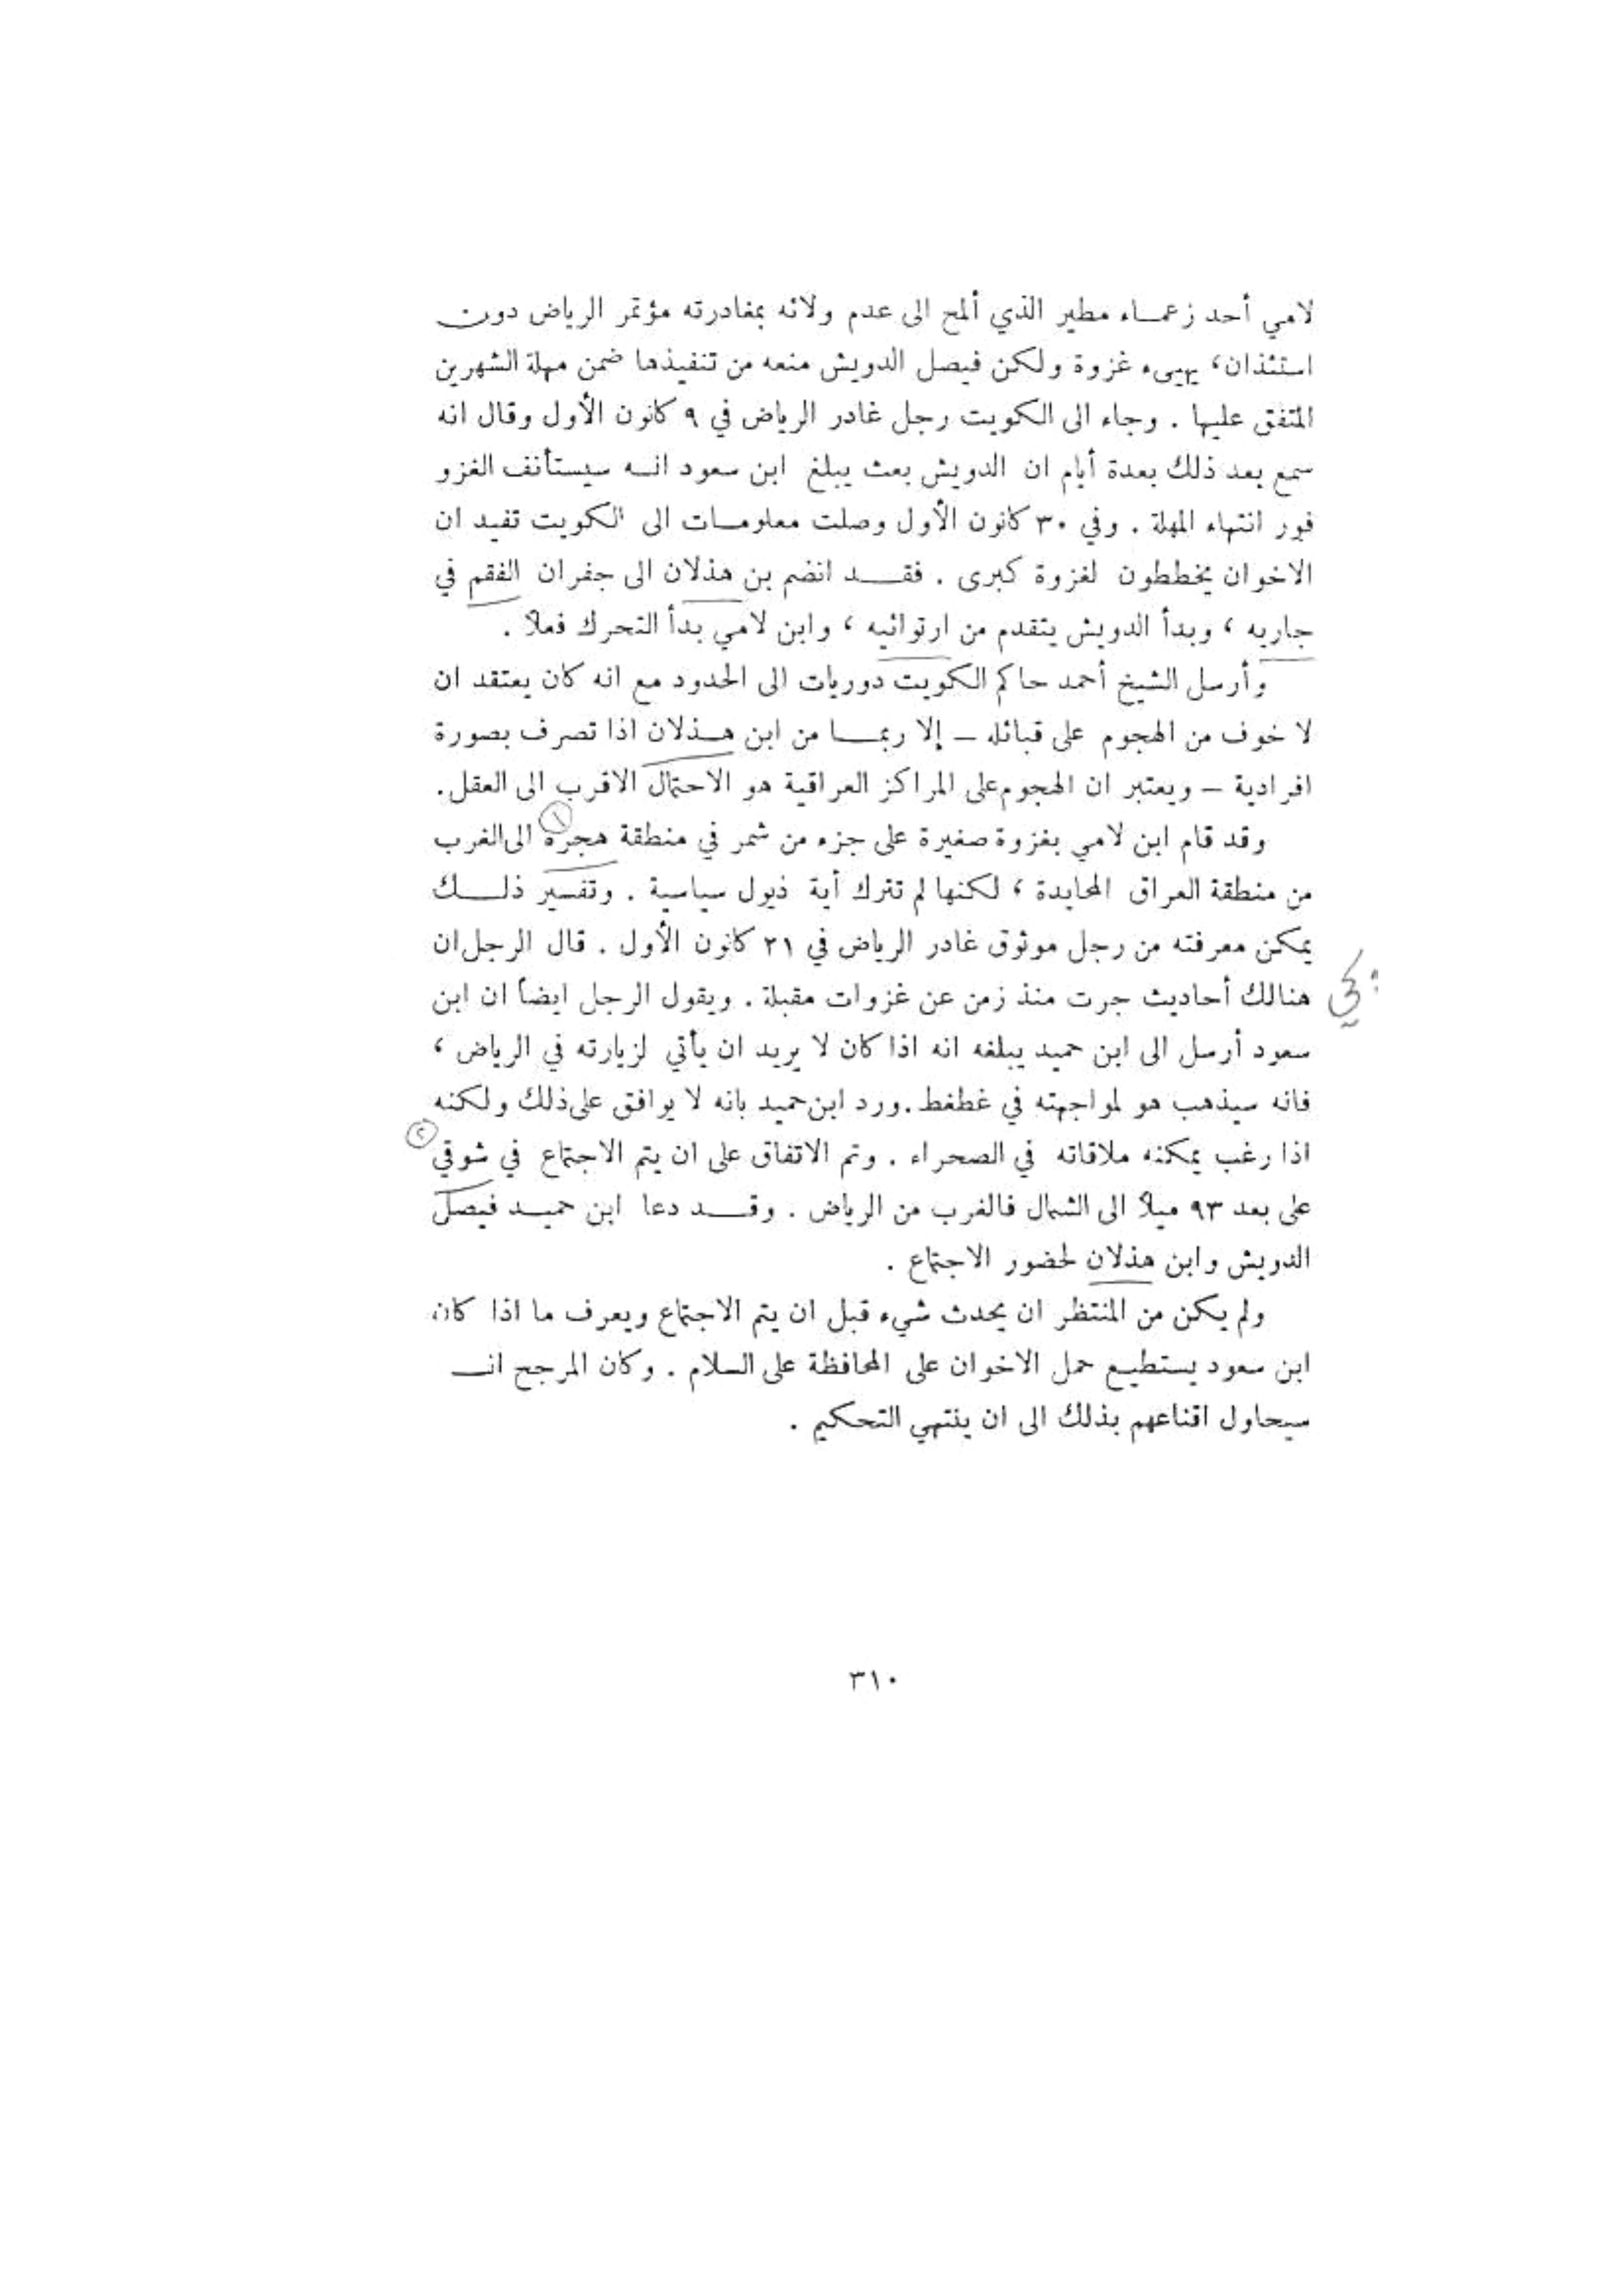 لامي أحد زعماء مطير الذي ألمح الى عدم ولائه بمغادرته مؤتمر الرياض دون
استئذان، يهيىء غزوة ولكن فيصل الدويش منعه من تنفيذها ضمن مهلة الشهرين
المتفق عليها . وجاء الى الكويت رجل غادر الرياض في ٩ كانون الأول وقال انه
سمع بعد ذلك بعدة أيام ان الدويش بعث يبلغ ابن سعود انه سيستأنف الغزو
فور انتهاء المهلة . وفي ٣٠ كانون الأول وصلت معلومات الى الكويت تفيد ان
الاخوان يخططون لغزوة كبرى . فقد انضم بن هذلان الى جفران الفقم في
جاريه ، وبدأ الدويش يتقدم من ارتوائيه ، وابن لامي بدأ التحرك فعلاً .
وأرسل الشيخ أحمد حاكم الكويت دوريات الى الحدود مع انه كان يعتقد ان
لا خوف من الهجوم على قبائله – إلا ربما من ابن هذلان اذا تصرف بصورة
افرادية – ويعتبر ان الهجوم على المراكز العراقية هو الاحتمال الاقرب الى العقل.
وقد قام ابن لامي بغزوة صغيرة على جزء من شمر في منطقة هجرة ١ الى الغرب
من منطقة العراق المحايدة ، لكنها لم تترك أية ذيول سياسية . وتفسير ذلك
يمكن معرفته من رجل موثوق غادر الرياض في ٢١ كانون الأول . قال الرجل ان
هنالك أحاديث جرت منذ زمن عن غزوات مقبلة . ويقول الرجل ايضاً ان ابن
سعود أرسل الى ابن حميد يبلغه انه اذا كان لا يريد ان يأتي لزيارته في الرياض ،
فانه سيذهب هو لمواجهته في غطغط . ورد ابن حميد بانه لا يوافق على ذلك ولكنه
اذا رغب يمكنه ملاقاته في الصحراء . وتم الاتفاق على ان يتم الاجتماع في شوقي ٢
على بعد ٩٣ ميلاً الى الشمال فالغرب من الرياض . وقد دعا ابن حميد فيصل
الدويش وابن هذلان لحضور الاجتماع .
ولم يكن من المنتظر ان يحدث شيء قبل ان يتم الاجتماع ويعرف ما اذا كان
ابن سعود يستطيع حمل الاخوان على المحافظة على السلام . وكان المرجح انه
سيحاول اقناعهم بذلك الى ان ينتهي التحكيم .
٣١٠